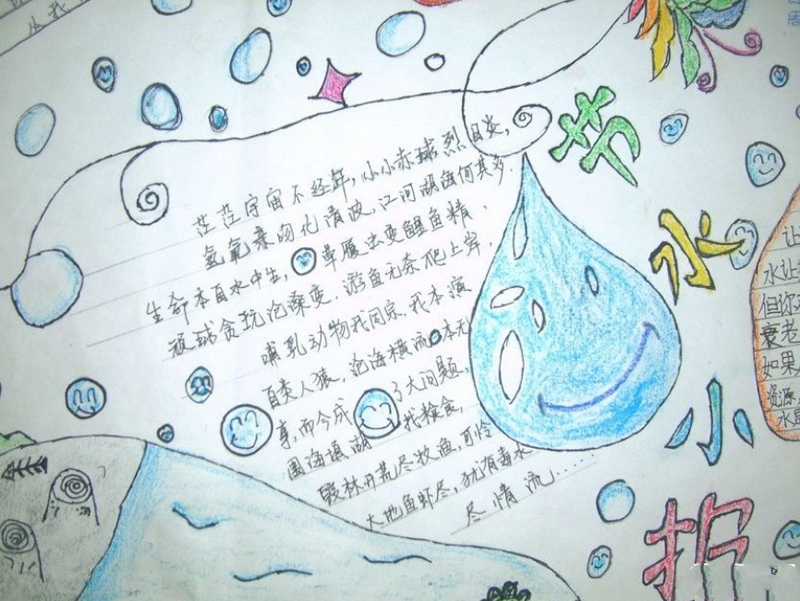 从我
茫茫宇宙不经年，小小赤球烈日炎，
氢氧乘的化清波，江河湖海何其多.
生命本自水中生，草履虫变鲤鱼精，
顽球贪玩泡澡变，游鱼无奈爬上岸，
哺乳动物我同宗，我本演
百类人猿，沧海横流本无
事，而今成了大问题，
围海填湖找粮食，
毁林开荒尽牧渔，可怜
大地鱼虾尽，犹有毒水
尽情流……
节
水
小
护
让
水让
但你
衰老
如果
资源
水是